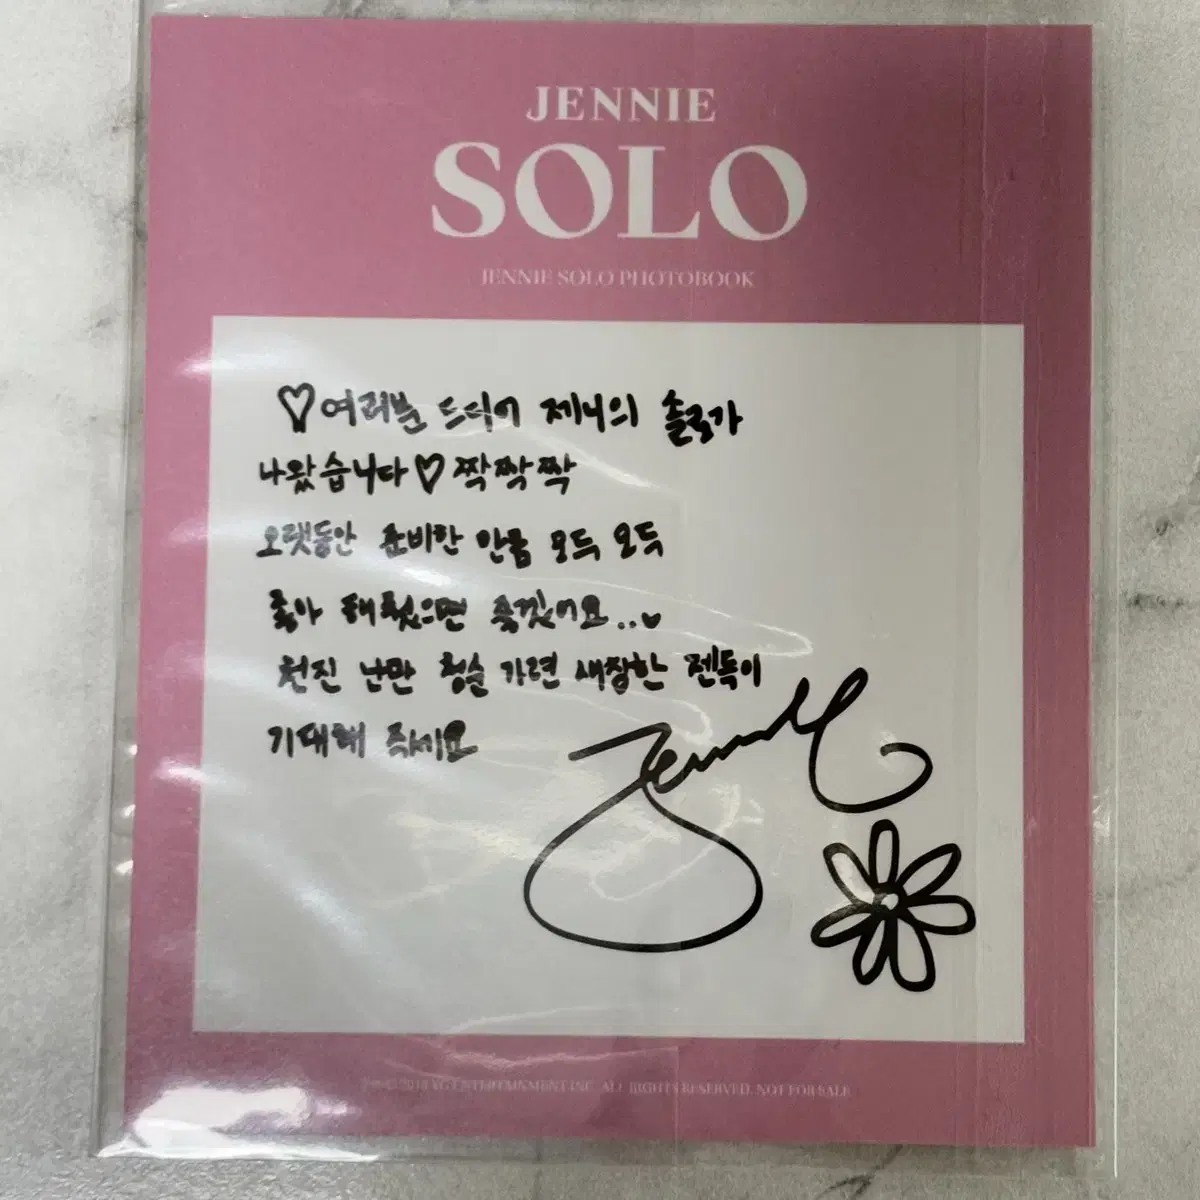 JENNIE
SOLO
JENNIE SOLO PHOTOBOOK
♡여러분 드디어 제니의 솔로가
나왔습니다♡짝짝짝
오랫동안 준비한 만큼 모두 모두
좋아 해줬으면 좋겠어요..♥
천진 난만 청순 가련 새침한 젠득이
기대해 주세요
Jennie
YG ENTERTAINMENT INC. ALL RIGHTS RESERVED. NOT FOR SALE